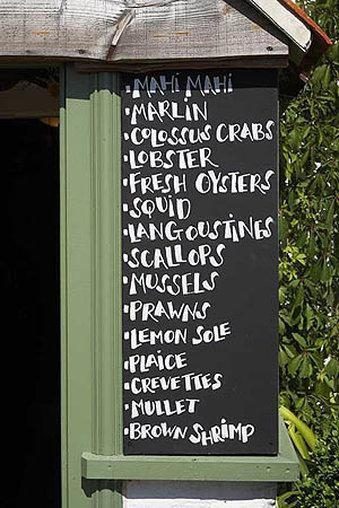 •MAHI MAHI
•MARLIN
•COLOSSUS CRABS
•LOBSTER
•FRESH OYSTERS
•SQUID
•LANGOUSTINES
•SCALLOPS
•MUSSELS
•PRAWNS
•LEMON SOLE
•PLAICE
•CREVETTES
•MULLET
•BROWN SHRIMP